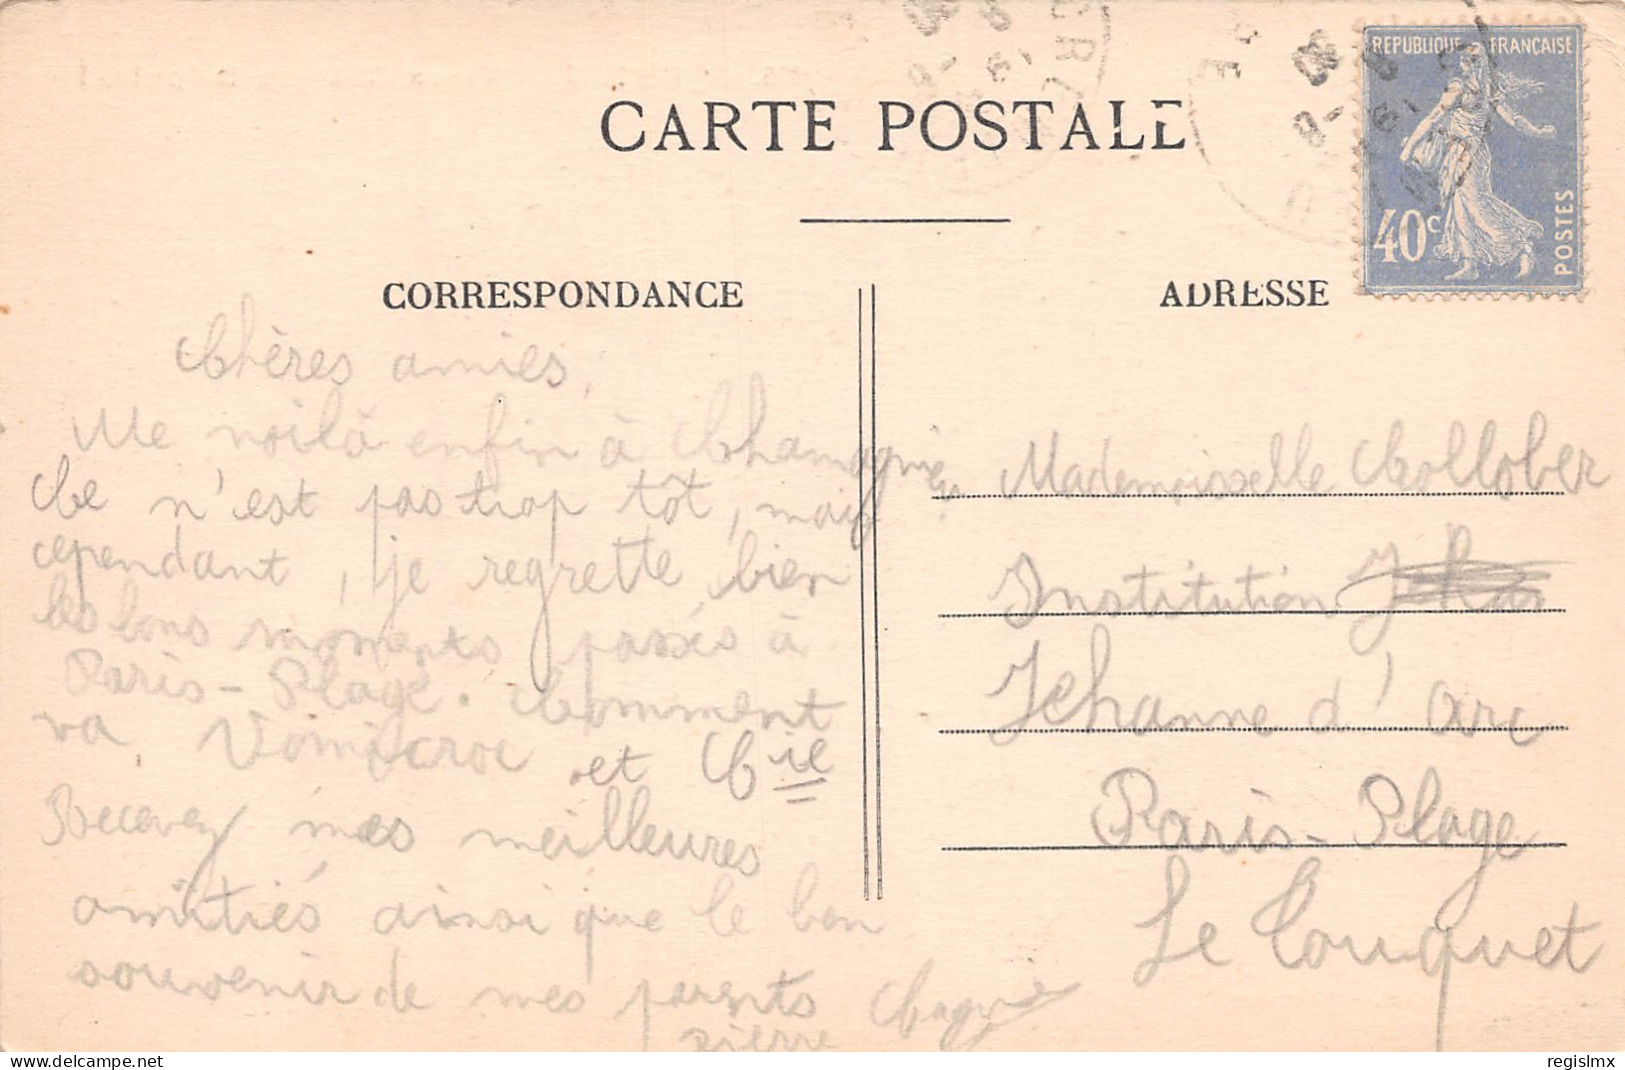 CARTE POSTALE
REPUBLIQUE FRANÇAISE
40c
POSTES
CORRESPONDANCE
ADRESSE
Chères amies,
Me voilà enfin à
Ce n'est pas trop tôt, mais
cependant, je regrette bien
les bons moments passés à
Paris-Plage. Comment
va et Cie
Recevez mes meilleures
amitiés ainsi que le bon
souvenir de mes parents
Pierre
Mademoisselle Collober
Institution J
Jehanne d'arc
Paris-Plage
Le Touquet
regislmx